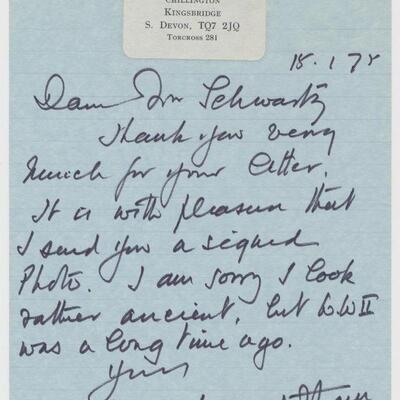 CHILLINGTON
KINGSBRIDGE
S. DEVON, TQ7 2JQ
TORCROSS 281
Dear Mr Schwartz
Thank you very
much for your letter.
It is with pleasure that
I send you a signed
Photo. I am sorry I look
rather ancient, but WW II
was a long time ago.
Yours